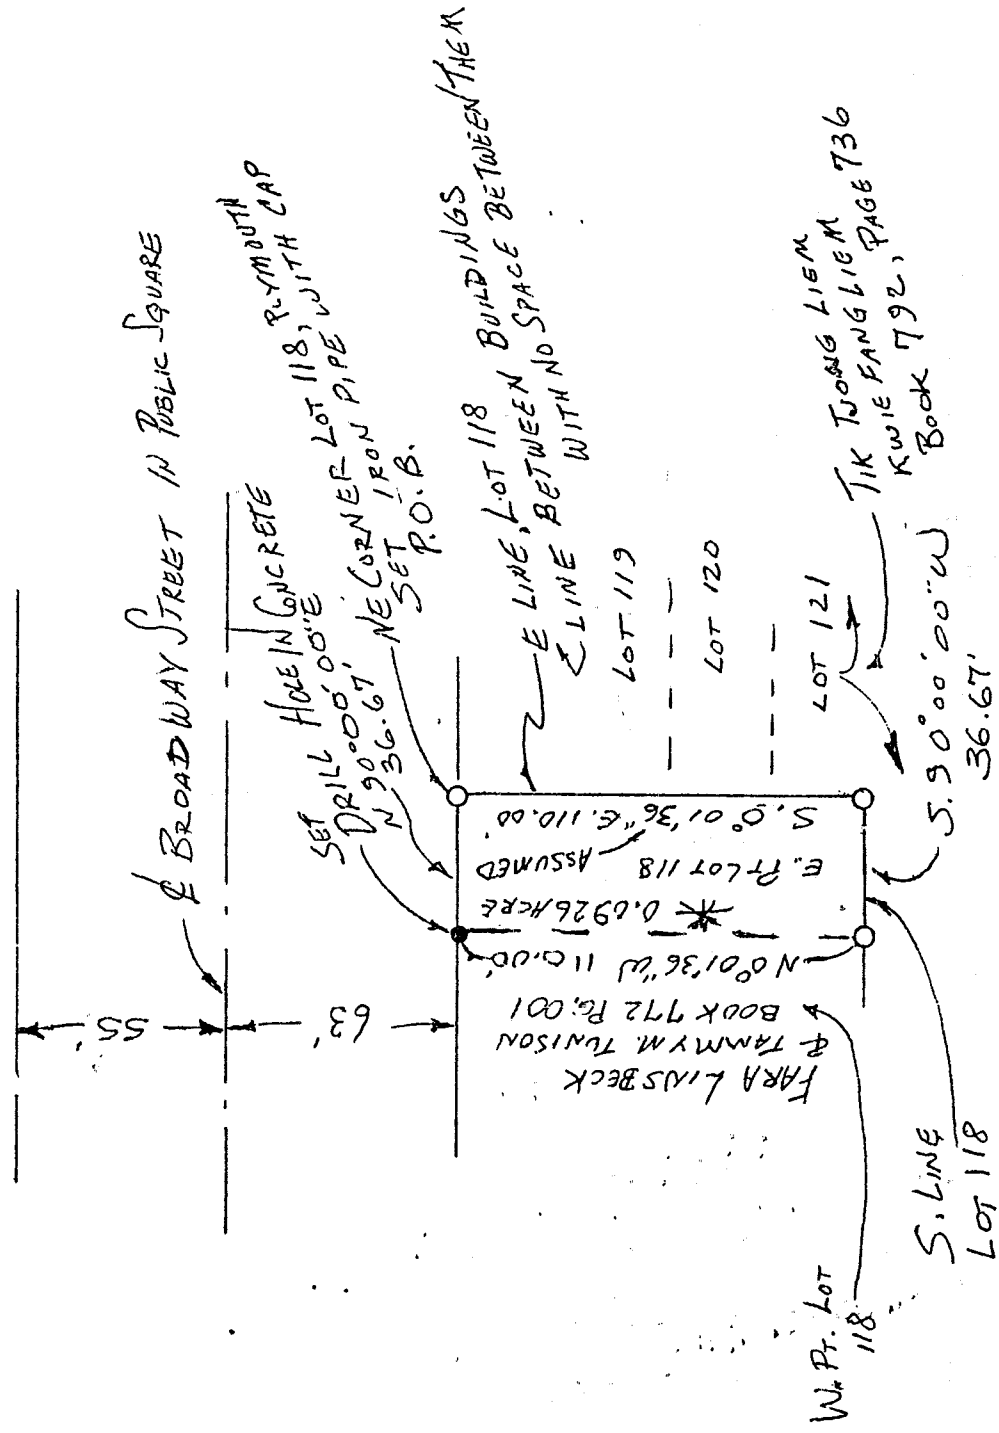 55'
63'
℄ BROADWAY STREET IN PUBLIC SQUARE
SET
DRILL HOLE IN CONCRETE
N 90°00'00"E
36.67'
NE CORNER LOT 118, PLYMOUTH
SET IRON PIPE WITH CAP
P.O.B.
E LINE, LOT 118
LINE BETWEEN BUILDINGS
BETWEEN
WITH NO SPACE BETWEEN THEM
LOT 119
LOT 120
LOT 121
TIK TJONG LIEM
KWIE FANG LIEM
BOOK 792, PAGE 736
S. 90°00'00"W
36.67'
S. 0°01'36"E. 110.00'
ASSUMED
E. PT LOT 118
0.0926 ACRE
N 0°01'36"W 110.00'
FARA LINSBECK
& TAMMY M. TUNISON
BOOK 772 PG. 001
W. PT. LOT
118
S. LINE
LOT 118